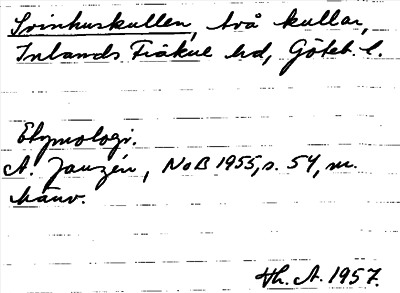 Svinhuskullen, två kullar,
Inlands Fräkne hd, Göteb. l.
Etymologi.
A. Janzén, NoB 1955, s. 54, m.
hänv.
Th. A. 1957.